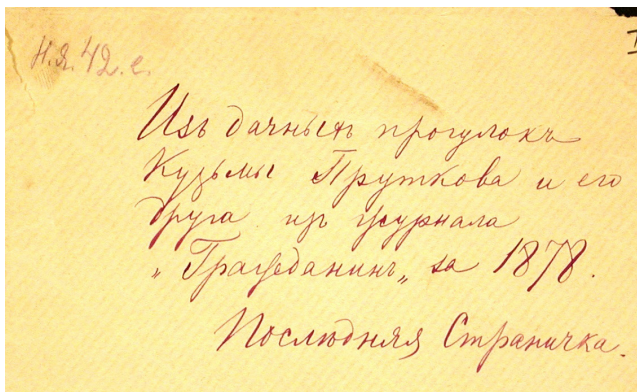 Н.Я. 42.е.
Изъ дачныхъ прогулокъ
Кузьмы Пруткова и его
друга из журнала
„Гражданинъ„ за 1878.
Последняя Страничка.